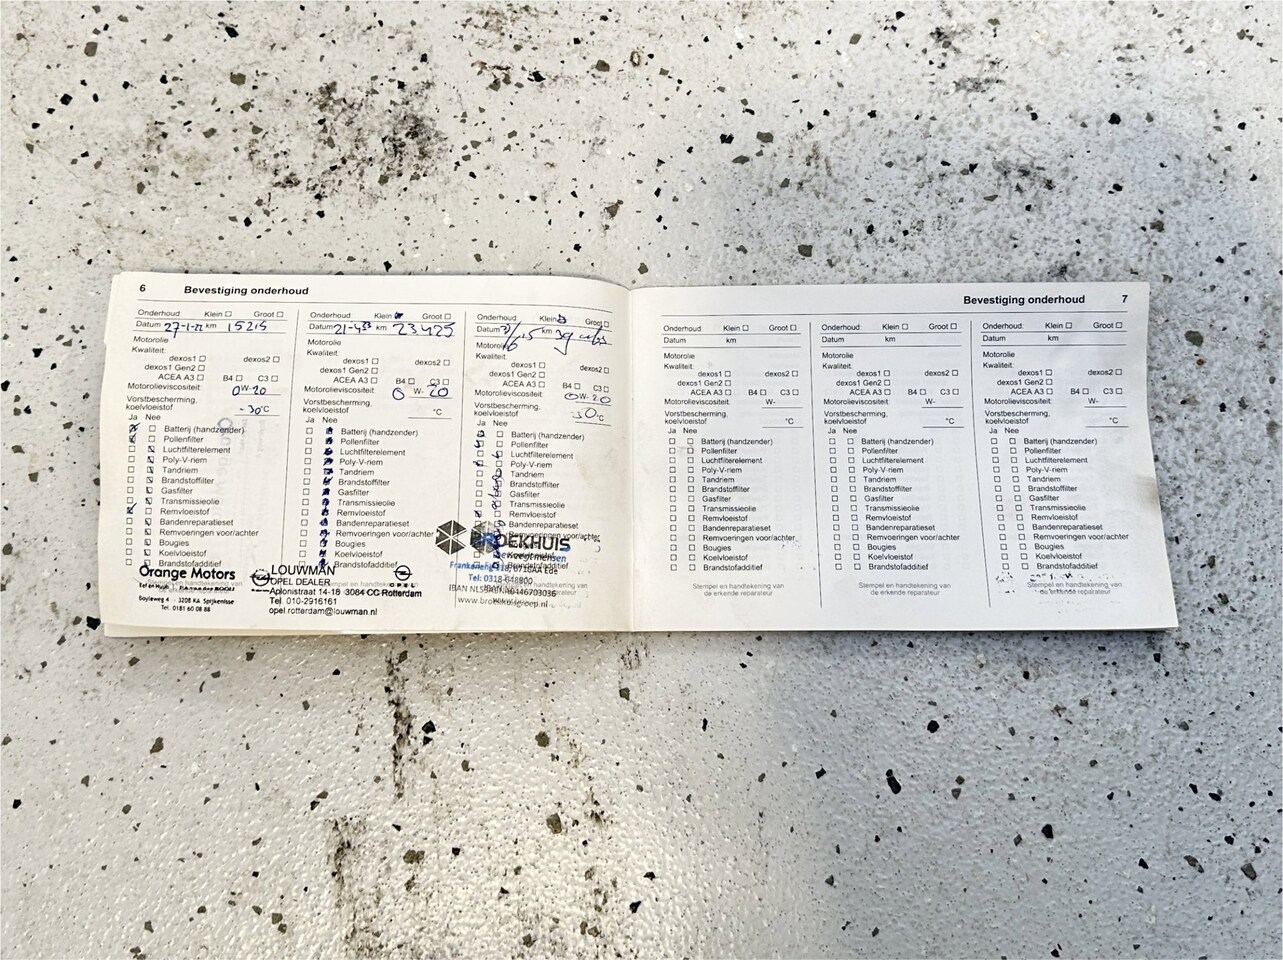 6 Bevestiging onderhoud
Onderhoud: Klein ☐ Groot ☐
Datum 27-1-22 km 15215
Motorolie
Kwaliteit:
dexos1 ☐ dexos2 ☐
dexos1 Gen2 ☐
ACEA A3 ☐ B4 ☐ C3 ☐
Motorolieviscositeit: 0W-20
Vorstbescherming.
koelvloeistof -30°C
Ja Nee
Batterij (handzender)
Pollenfilter
Luchtfilterelement
Poly-V-riem
Tandriem
Brandstoffilter
Gasfilter
Transmissieolie
Remvloeistof
Bandenreparatieset
Remvoeringen voor/achter
Bougies
Koelvloeistof
Brandstofadditief
Orange Motors
Boyleweg 4 3208 KA Spijkenisse
Tel. 0181 60 08 88
Onderhoud: Klein Groot ☐
Datum 21-4 km 23425
Motorolie
Kwaliteit:
dexos1 ☐ dexos2 ☐
dexos1 Gen2 ☐
ACEA A3 ☐ B4 ☐ C3 ☐
Motorolieviscositeit: 0 W- 20
Vorstbescherming.
koelvloeistof °C
Ja Nee
Batterij (handzender)
Pollenfilter
Luchtfilterelement
Poly-V-riem
Tandriem
Brandstoffilter
Gasfilter
Transmissieolie
Remvloeistof
Bandenreparatieset
Remvoeringen voor/achter
Bougies
Koelvloeistof
Brandstofadditief
LOUWMAN
OPEL DEALER OPEL
Aplonistraat 14-18 3084 CC Rotterdam
Tel 010-2916161
opel rotterdam@louwman.nl
Onderhoud: Klein Groot ☐
Datum km
Motorolie
Kwaliteit:
dexos1 ☐ dexos2 ☐
dexos1 Gen2 ☐
ACEA A3 ☐ B4 ☐ C3 ☐
Motorolieviscositeit: 0W-20
Vorstbescherming.
koelvloeistof 30°C
Ja Nee
Batterij (handzender)
Pollenfilter
Luchtfilterelement
Poly-V-riem
Tandriem
Brandstoffilter
Gasfilter
Transmissieolie
Remvloeistof
Bandenreparatieset
Remvoeringen voor/achter
Bougies
Koelvloeistof
Brandstofadditief
EKHUIS
beweegt mensen
6716AA Ede
Tel: 0318-648800
Bevestiging onderhoud 7
Onderhoud: Klein ☐ Groot ☐
Datum km
Motorolie
Kwaliteit:
dexos1 ☐ dexos2 ☐
dexos1 Gen2 ☐
ACEA A3 ☐ B4 ☐ C3 ☐
Motorolieviscositeit: W-
Vorstbescherming.
koelvloeistof °C
Ja Nee
☐ ☐ Batterij (handzender)
☐ ☐ Pollenfilter
☐ ☐ Luchtfilterelement
☐ ☐ Poly-V-riem
☐ ☐ Tandriem
☐ ☐ Brandstoffilter
☐ ☐ Gasfilter
☐ ☐ Transmissieolie
☐ ☐ Remvloeistof
☐ ☐ Bandenreparatieset
☐ ☐ Remvoeringen voor/achter
☐ ☐ Bougies
☐ ☐ Koelvloeistof
☐ ☐ Brandstofadditief
Stempel en handtekening van
de erkende reparateur
Onderhoud: Klein ☐ Groot ☐
Datum km
Motorolie
Kwaliteit:
dexos1 ☐ dexos2 ☐
dexos1 Gen2 ☐
ACEA A3 ☐ B4 ☐ C3 ☐
Motorolieviscositeit: W-
Vorstbescherming.
koelvloeistof °C
Ja Nee
☐ ☐ Batterij (handzender)
☐ ☐ Pollenfilter
☐ ☐ Luchtfilterelement
☐ ☐ Poly-V-riem
☐ ☐ Tandriem
☐ ☐ Brandstoffilter
☐ ☐ Gasfilter
☐ ☐ Transmissieolie
☐ ☐ Remvloeistof
☐ ☐ Bandenreparatieset
☐ ☐ Remvoeringen voor/achter
☐ ☐ Bougies
☐ ☐ Koelvloeistof
☐ ☐ Brandstofadditief
Stempel en handtekening van
de erkende reparateur
Onderhoud: Klein ☐ Groot ☐
Datum km
Motorolie
Kwaliteit:
dexos1 ☐ dexos2 ☐
dexos1 Gen2 ☐
ACEA A3 ☐ B4 ☐ C3 ☐
Motorolieviscositeit: W-
Vorstbescherming.
koelvloeistof °C
Ja Nee
☐ ☐ Batterij (handzender)
☐ ☐ Pollenfilter
☐ ☐ Luchtfilterelement
☐ ☐ Poly-V-riem
☐ ☐ Tandriem
☐ ☐ Brandstoffilter
☐ ☐ Gasfilter
☐ ☐ Transmissieolie
☐ ☐ Remvloeistof
☐ ☐ Bandenreparatieset
☐ ☐ Remvoeringen voor/achter
☐ ☐ Bougies
☐ ☐ Koelvloeistof
☐ ☐ Brandstofadditief
Stempel en handtekening van
de erkende reparateur